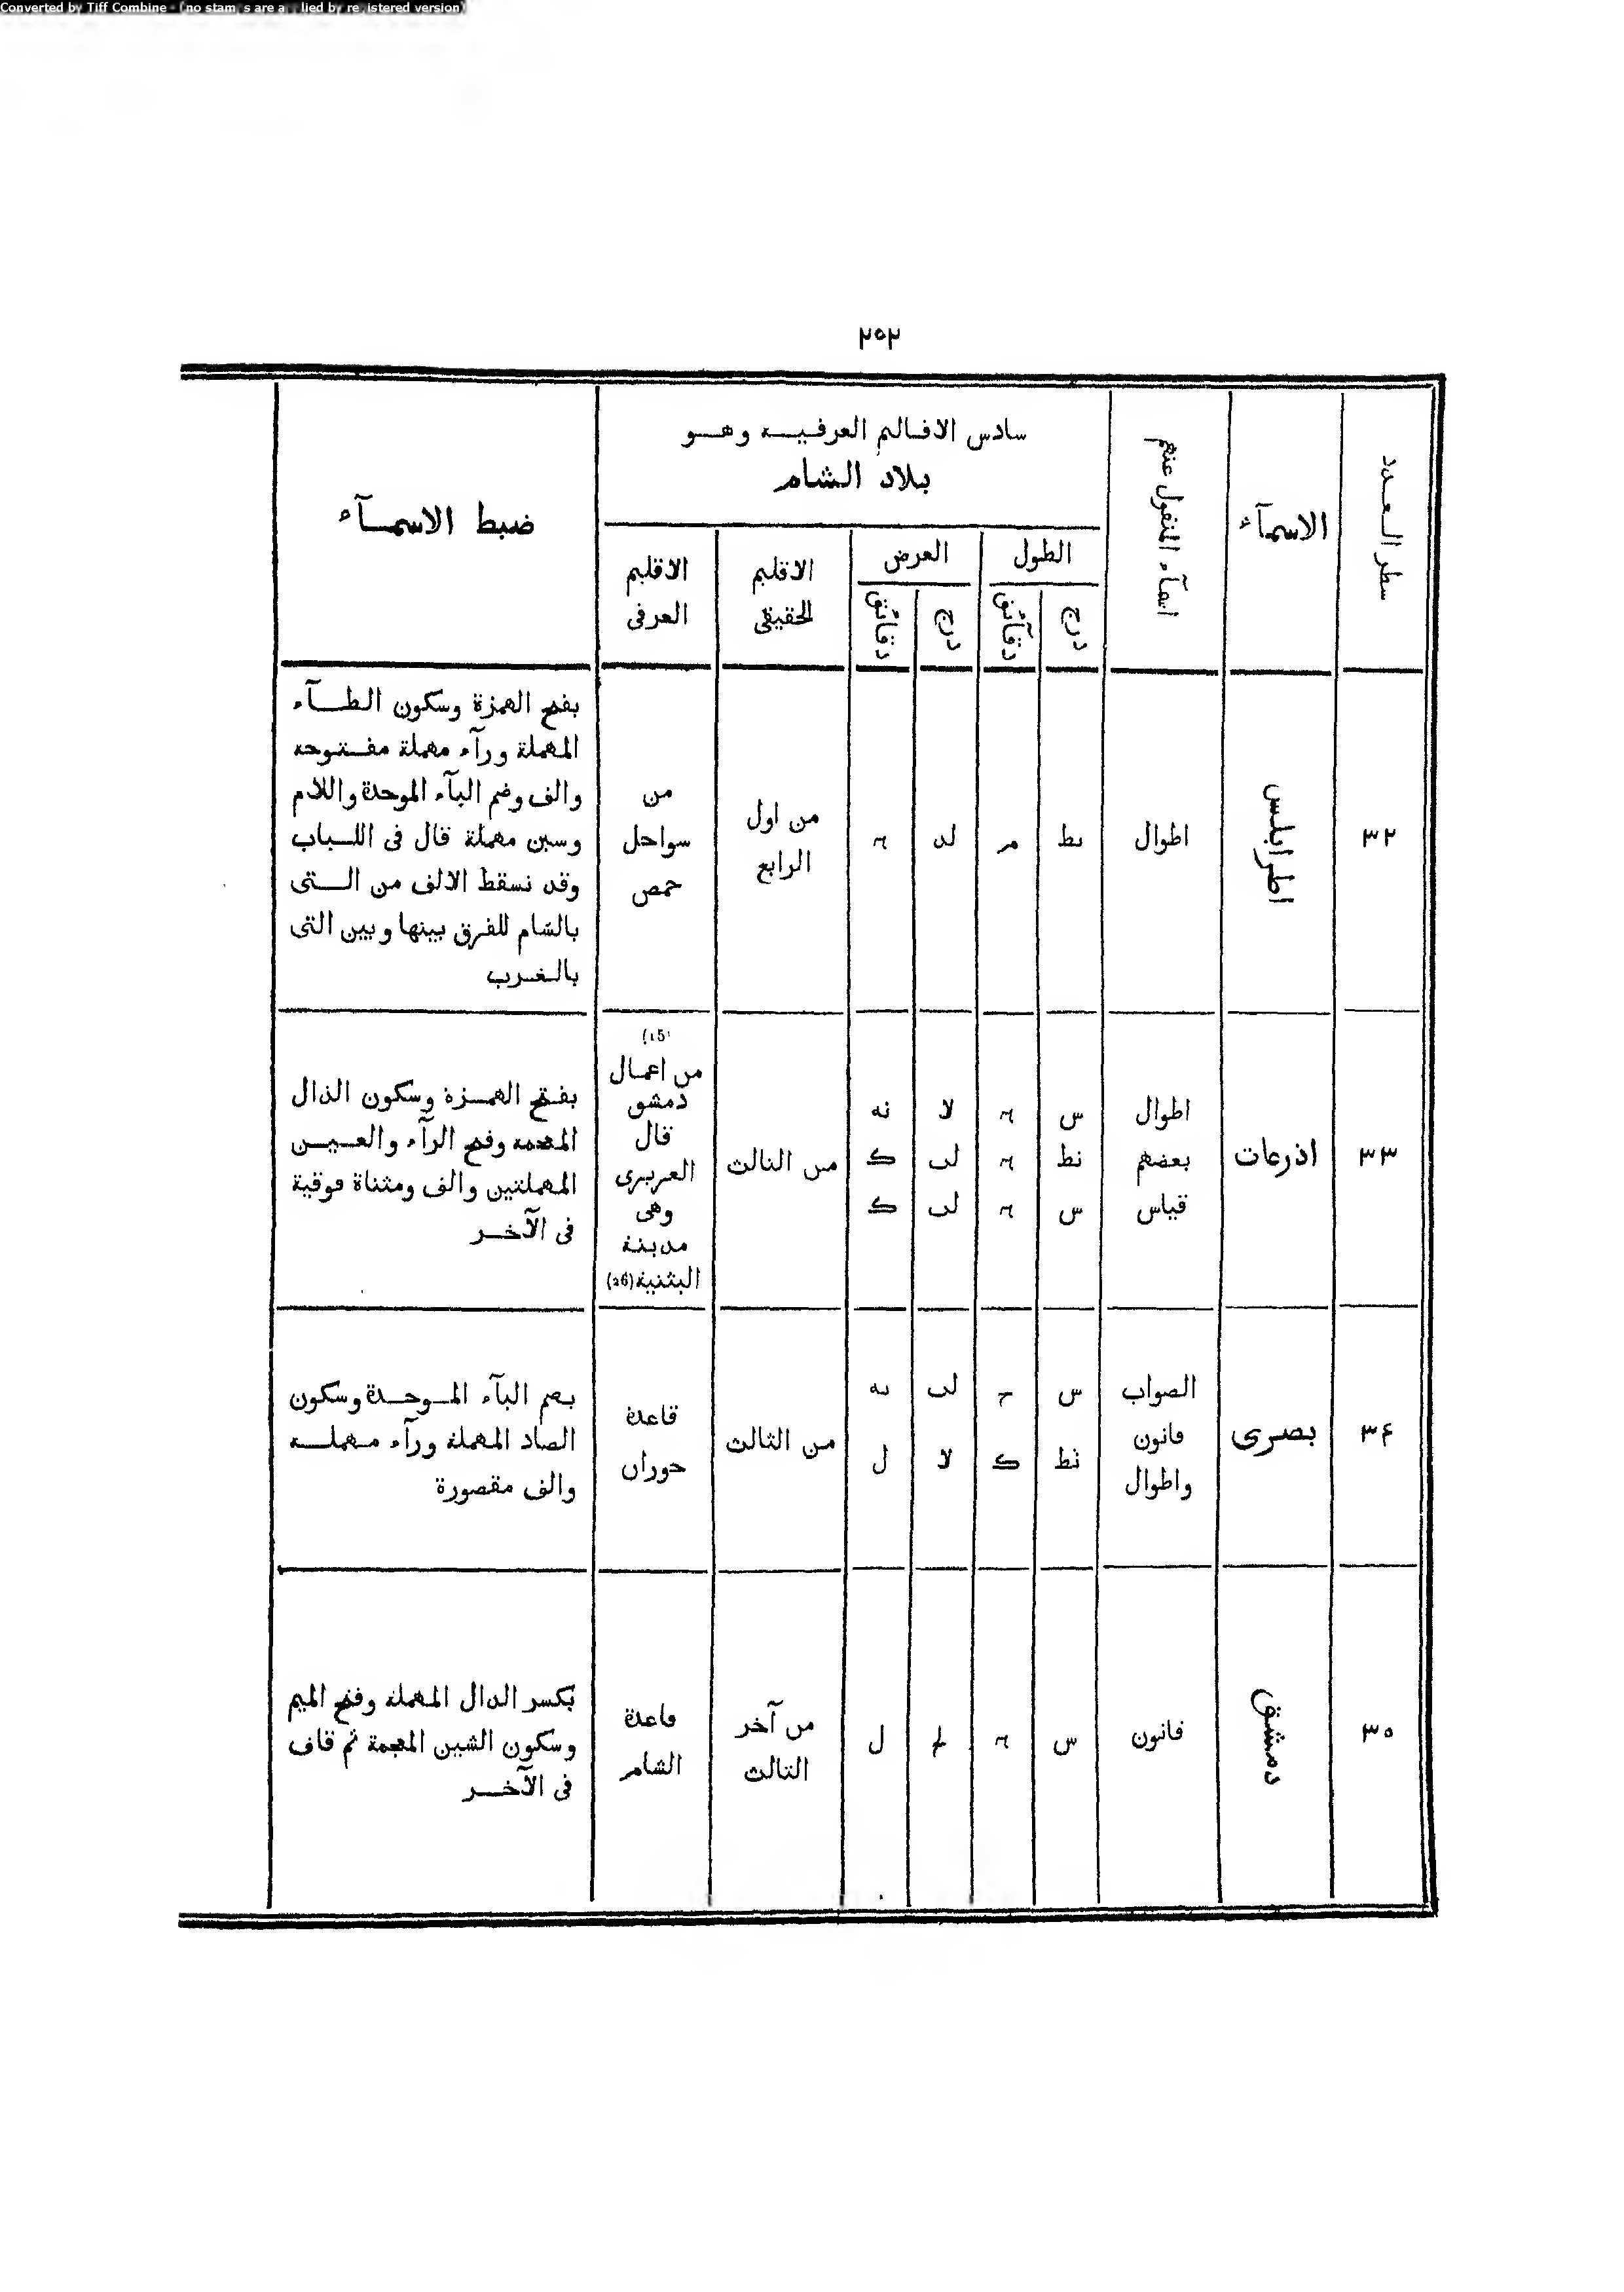 ٢٥٢
سطر العدد
الاسمآء
اسمآء المنقول عنهم
سادس الاقاليم العرفية وهو
بلاد الشام
الطول
العرض
درج
دقآئق
درج
دقائق
الاقليم
الحقيقى
الاقليم
العرفى
ضبط الاسمآء
٣٢
اطرابلس
اطوال
نط
م
لد
ه
من اول
الرابع
من
سواحل
حمص
بفتح الهمزة وسكون الطآء
المهملة ورآء مهملة مفتوحة
والف وضم البآء الموحدة واللام
وسين مهملة قال فى اللباب
وقد تسقط الالف من التى
بالشام للفرق بينها وبين التى
بالغرب
٣٣
اذرعات
اطوال
بعضهم
قياس
س
نط
س
ه
ه
ه
لا
لب
لب
نه
ك
ك
من الثالث
(15)
من اعمال
دمشق
قال
العزيزى
وهى
مدينة
البثنية(26)
بفتح الهمزة وسكون الذال
المعجمة وفتح الرآء والعين
المهملتين والف ومثناة فوقية
فى الآخر
٣۴
بصرى
الصواب
قانون
واطوال
س
نط
ح
ك
لب
لا
نه
ل
من الثالث
قاعدة
حوران
بضم البآء الموحدة وسكون
الصاد المهملة ورآء مهملة
والف مقصورة
٣٥
دمشق
قانون
س
ه
لج
ل
من آخر
الثالث
قاعدة
الشام
بكسر الدال المهملة وفتح الميم
وسكون الشين المعجمة ثم قاف
فى الآخر